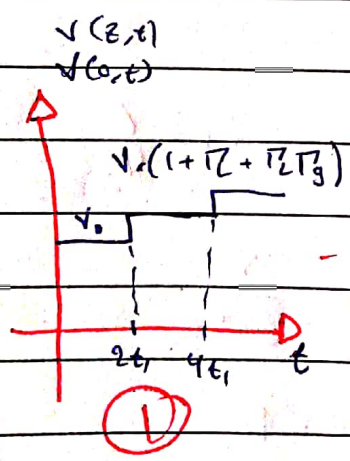 V(z,t)
V(0,t)
V₀(1+Γ_L+Γ_LΓ_g)
V₀
2t₁ 4t₁ t
1